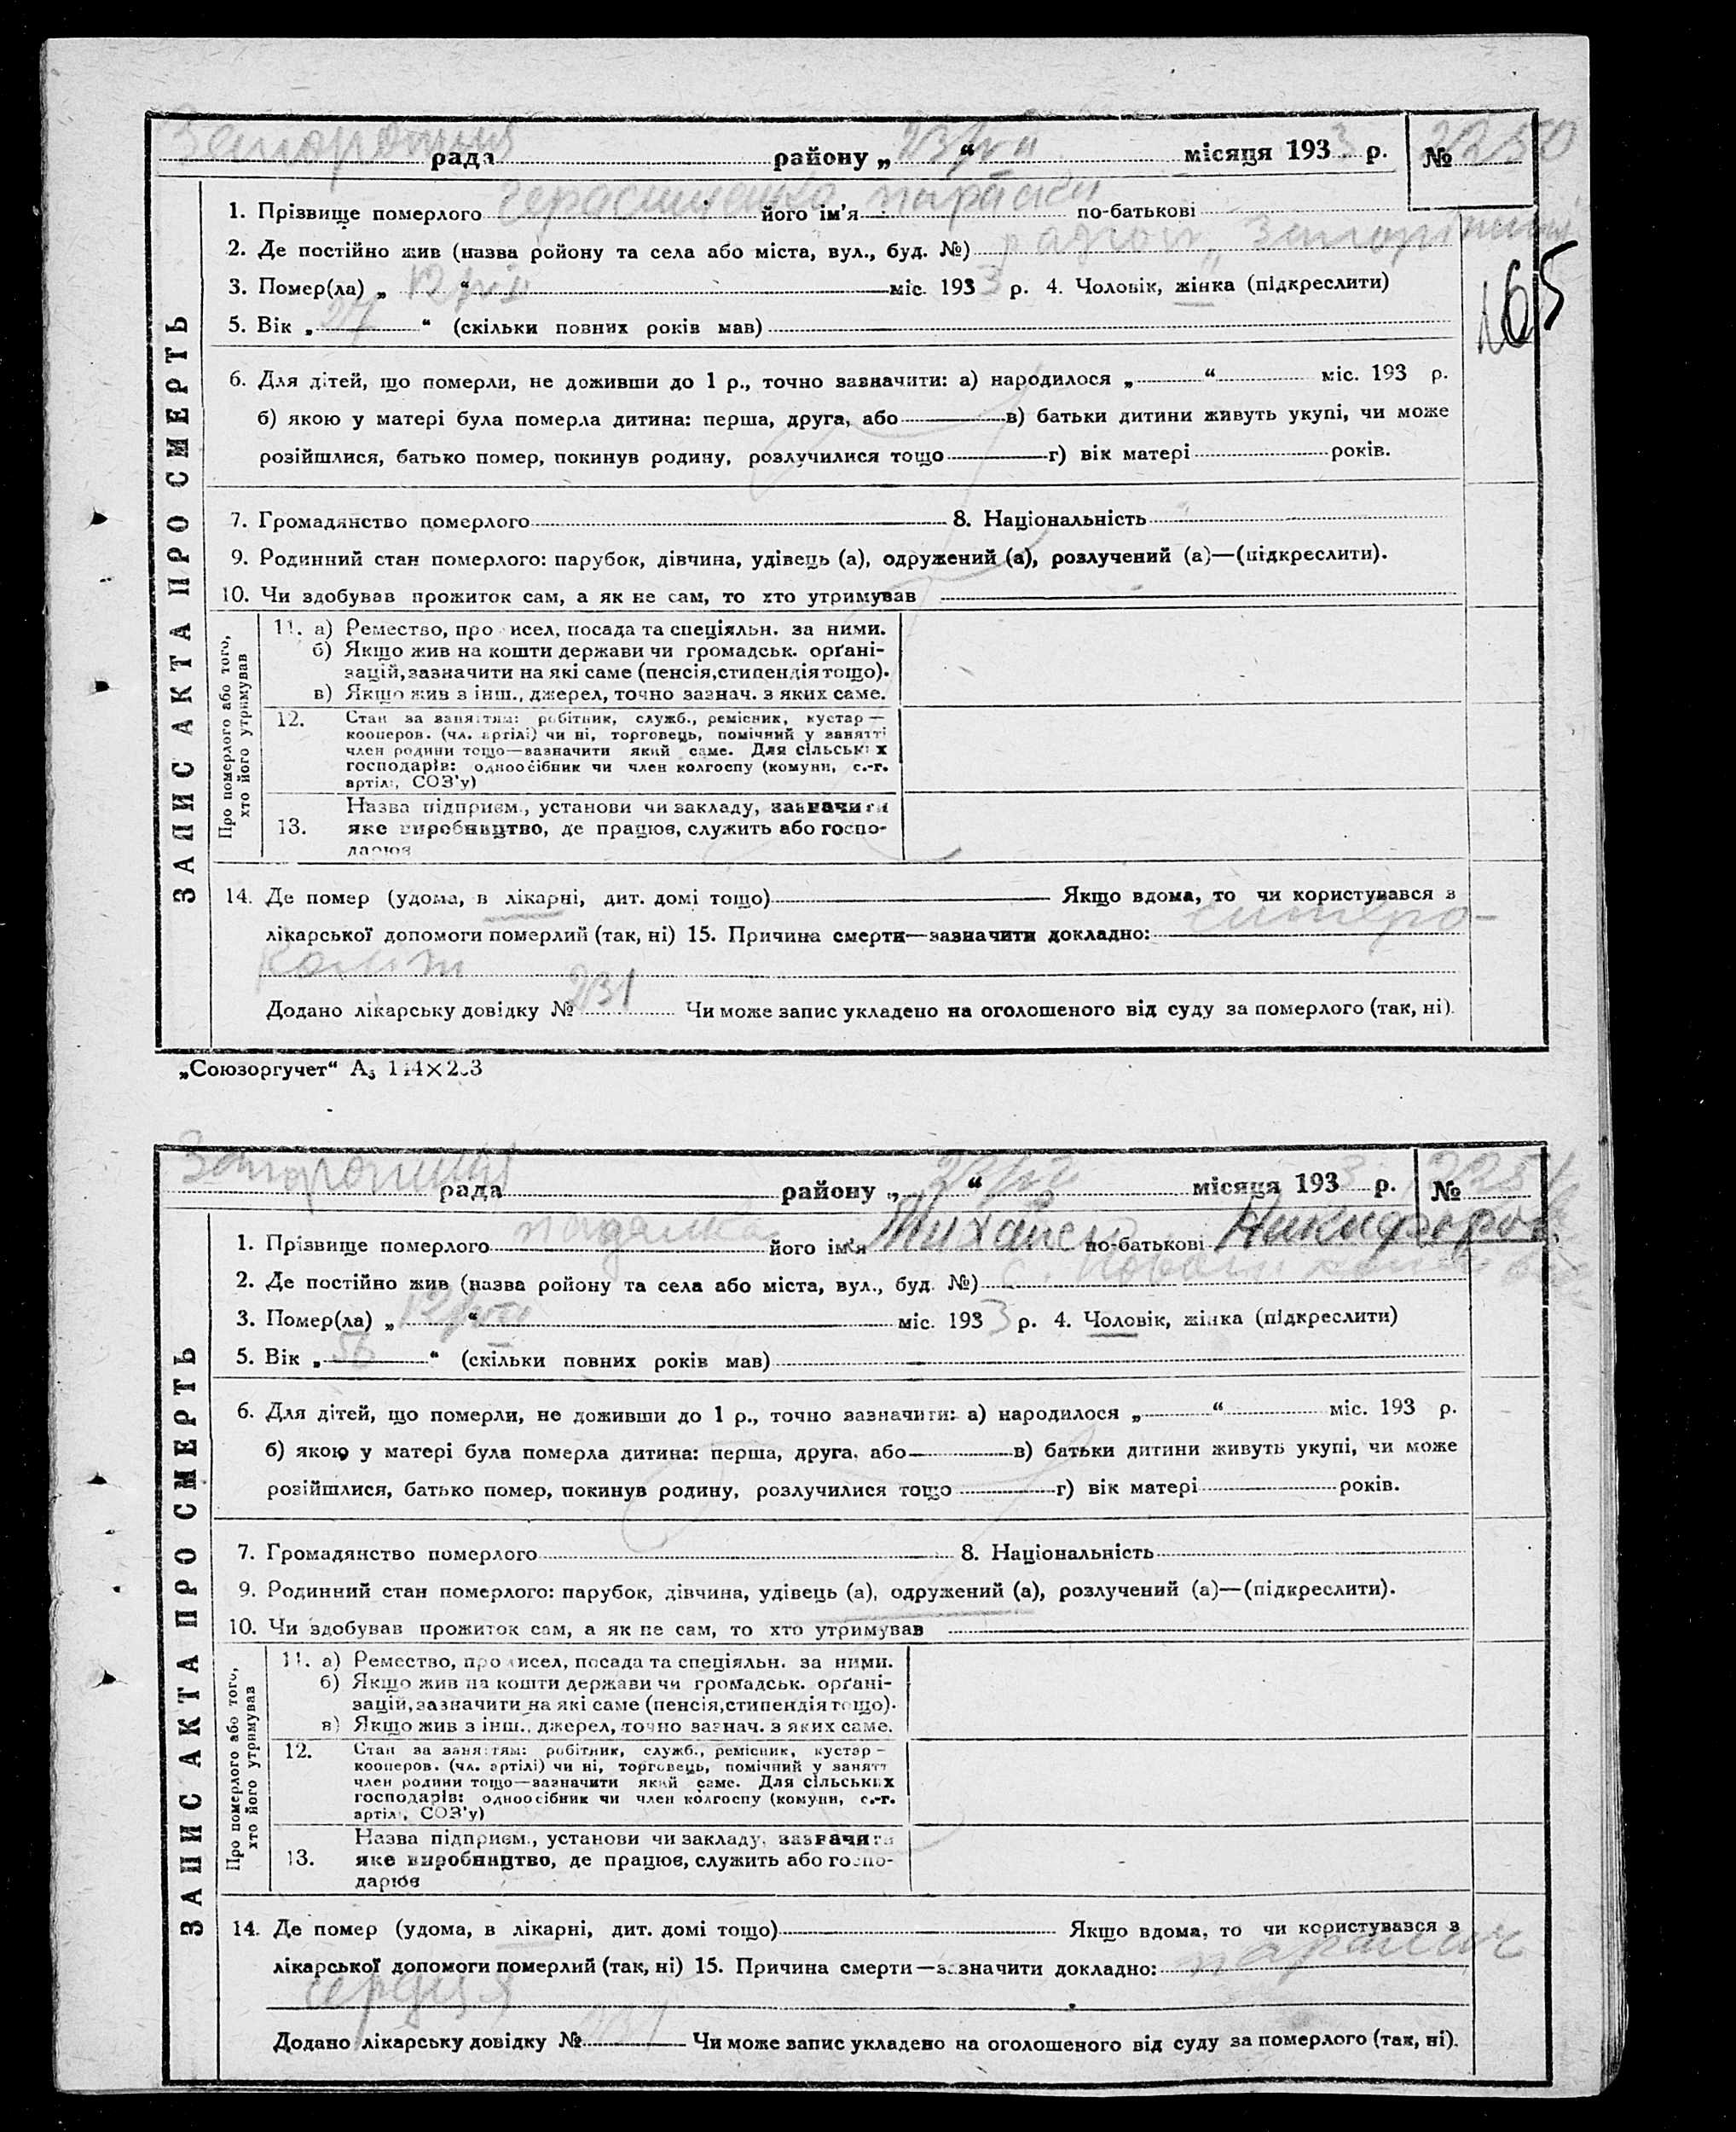 Запоріжжя рада району „ 23/VII “ місяця 1933 р. № 2250
1. Прізвище померлого Герасименко його ім’я Параска по-батькові
2. Де постійно жив (назва ройону та села або міста, вул., буд. №)
165
3. Помер(ла) „ 12/VII “ міс. 1933 р. 4. Чоловік, жінка (підкреслити)
5. Вік „ 27 “ (скільки повних років мав)
6. Для дітей, що померли, не доживши до 1 р., точно зазначити: а) народилося „ “ міс. 193 р.
б) якою у матері була померла дитина: перша, друга, або в) батьки дитини живуть укупі, чи може
розійшлися, батько помер, покинув родину, розлучилися тощо г) вік матері років.
7. Громадянство померлого 8. Національність
9. Родинний стан померлого: парубок, дівчина, удівець (а), одружений (а), розлучений (а)—(підкреслити).
10. Чи здобував прожиток сам, а як не сам, то хто утримував
ЗАПИС АКТА ПРО СМЕРТЬ
Про померлого або того, хто його утримував
11. а) Ремество, про исел, посада та спеціяльн. за ними.
б) Якщо жив на кошти держави чи громадськ. орґані-
зацій, зазначити на які саме (пенсія, стипендія тощо).
в) Якщо жив з інш., джерел, точно зазнач. з яких саме.
12. Стан за заняттям: робітник, служб., ремісник, кустар —
кооперов. (чл. артілі) чи ні, торговець, помічний у занятті
член родини тощо—зазначити який саме. Для сільських
господарів: одноосібник чи член колгоспу (комуни, с.-г.
артілі, СОЗ’у)
13. Назва підприєм., установи чи закладу, зазначити
яке виробництво, де працює, служить або госпо-
дарює
14. Де помер (удома, в лікарні, дит. домі тощо) Якщо вдома, то чи користувався з
лікарської допомоги померлий (так, ні) 15. Причина смерти—зазначити докладно: ентеро-
коліт
Додано лікарську довідку № 231 Чи може запис укладено на оголошеного від суду за померлого (так, ні).
„Союзоргучет“ А₅
рада району „ “ місяця 1933 р. № 2251
1. Прізвище померлого його ім’я Михайло по-батькові Никифоров.
2. Де постійно жив (назва ройону та села або міста, вул., буд. №)
3. Помер(ла) „ 12/VII “ міс. 1933 р. 4. Чоловік, жінка (підкреслити)
5. Вік „ 56 “ (скільки повних років мав)
6. Для дітей, що померли, не доживши до 1 р., точно зазначити: а) народилося „ “ міс. 193 р.
б) якою у матері була померла дитина: перша, друга, або в) батьки дитини живуть укупі, чи може
розійшлися, батько помер, покинув родину, розлучилися тощо г) вік матері років.
7. Громадянство померлого 8. Національність
9. Родинний стан померлого: парубок, дівчина, удівець (а), одружений (а), розлучений (а)—(підкреслити).
10. Чи здобував прожиток сам, а як не сам, то хто утримував
ЗАПИС АКТА ПРО СМЕРТЬ
Про померлого або того, хто його утримував
11. а) Ремество, про исел, посада та спеціяльн. за ними.
б) Якщо жив на кошти держави чи громадськ. орґані-
зацій, зазначити на які саме (пенсія, стипендія тощо).
в) Якщо жив з інш., джерел, точно зазнач. з яких саме.
12. Стан за заняттям: робітник, служб., ремісник, кустар —
кооперов. (чл. артілі) чи ні, торговець, помічний у занятт
член родини тощо—зазначити який саме. Для сільських
господарів: одноосібник чи член колгоспу (комуни, с.-г.
артілі, СОЗ’у)
13. Назва підприєм., установи чи закладу, зазначити
яке виробництво, де працює, служить або госпо-
дарює
14. Де помер (удома, в лікарні, дит. домі тощо) Якщо вдома, то чи користувався з
лікарської допомоги померлий (так, ні) 15. Причина смерти—зазначити докладно: параліч
серця
Додано лікарську довідку № Чи може запис укладено на оголошеного від суду за померлого (так, ні).